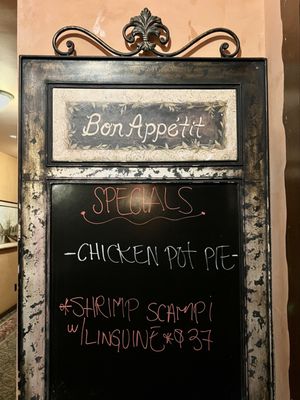 Bon Appétit
SPECIALS
-CHICKEN POT PIE-
*SHRIMP SCAMPi
w/LINGUINE *$37